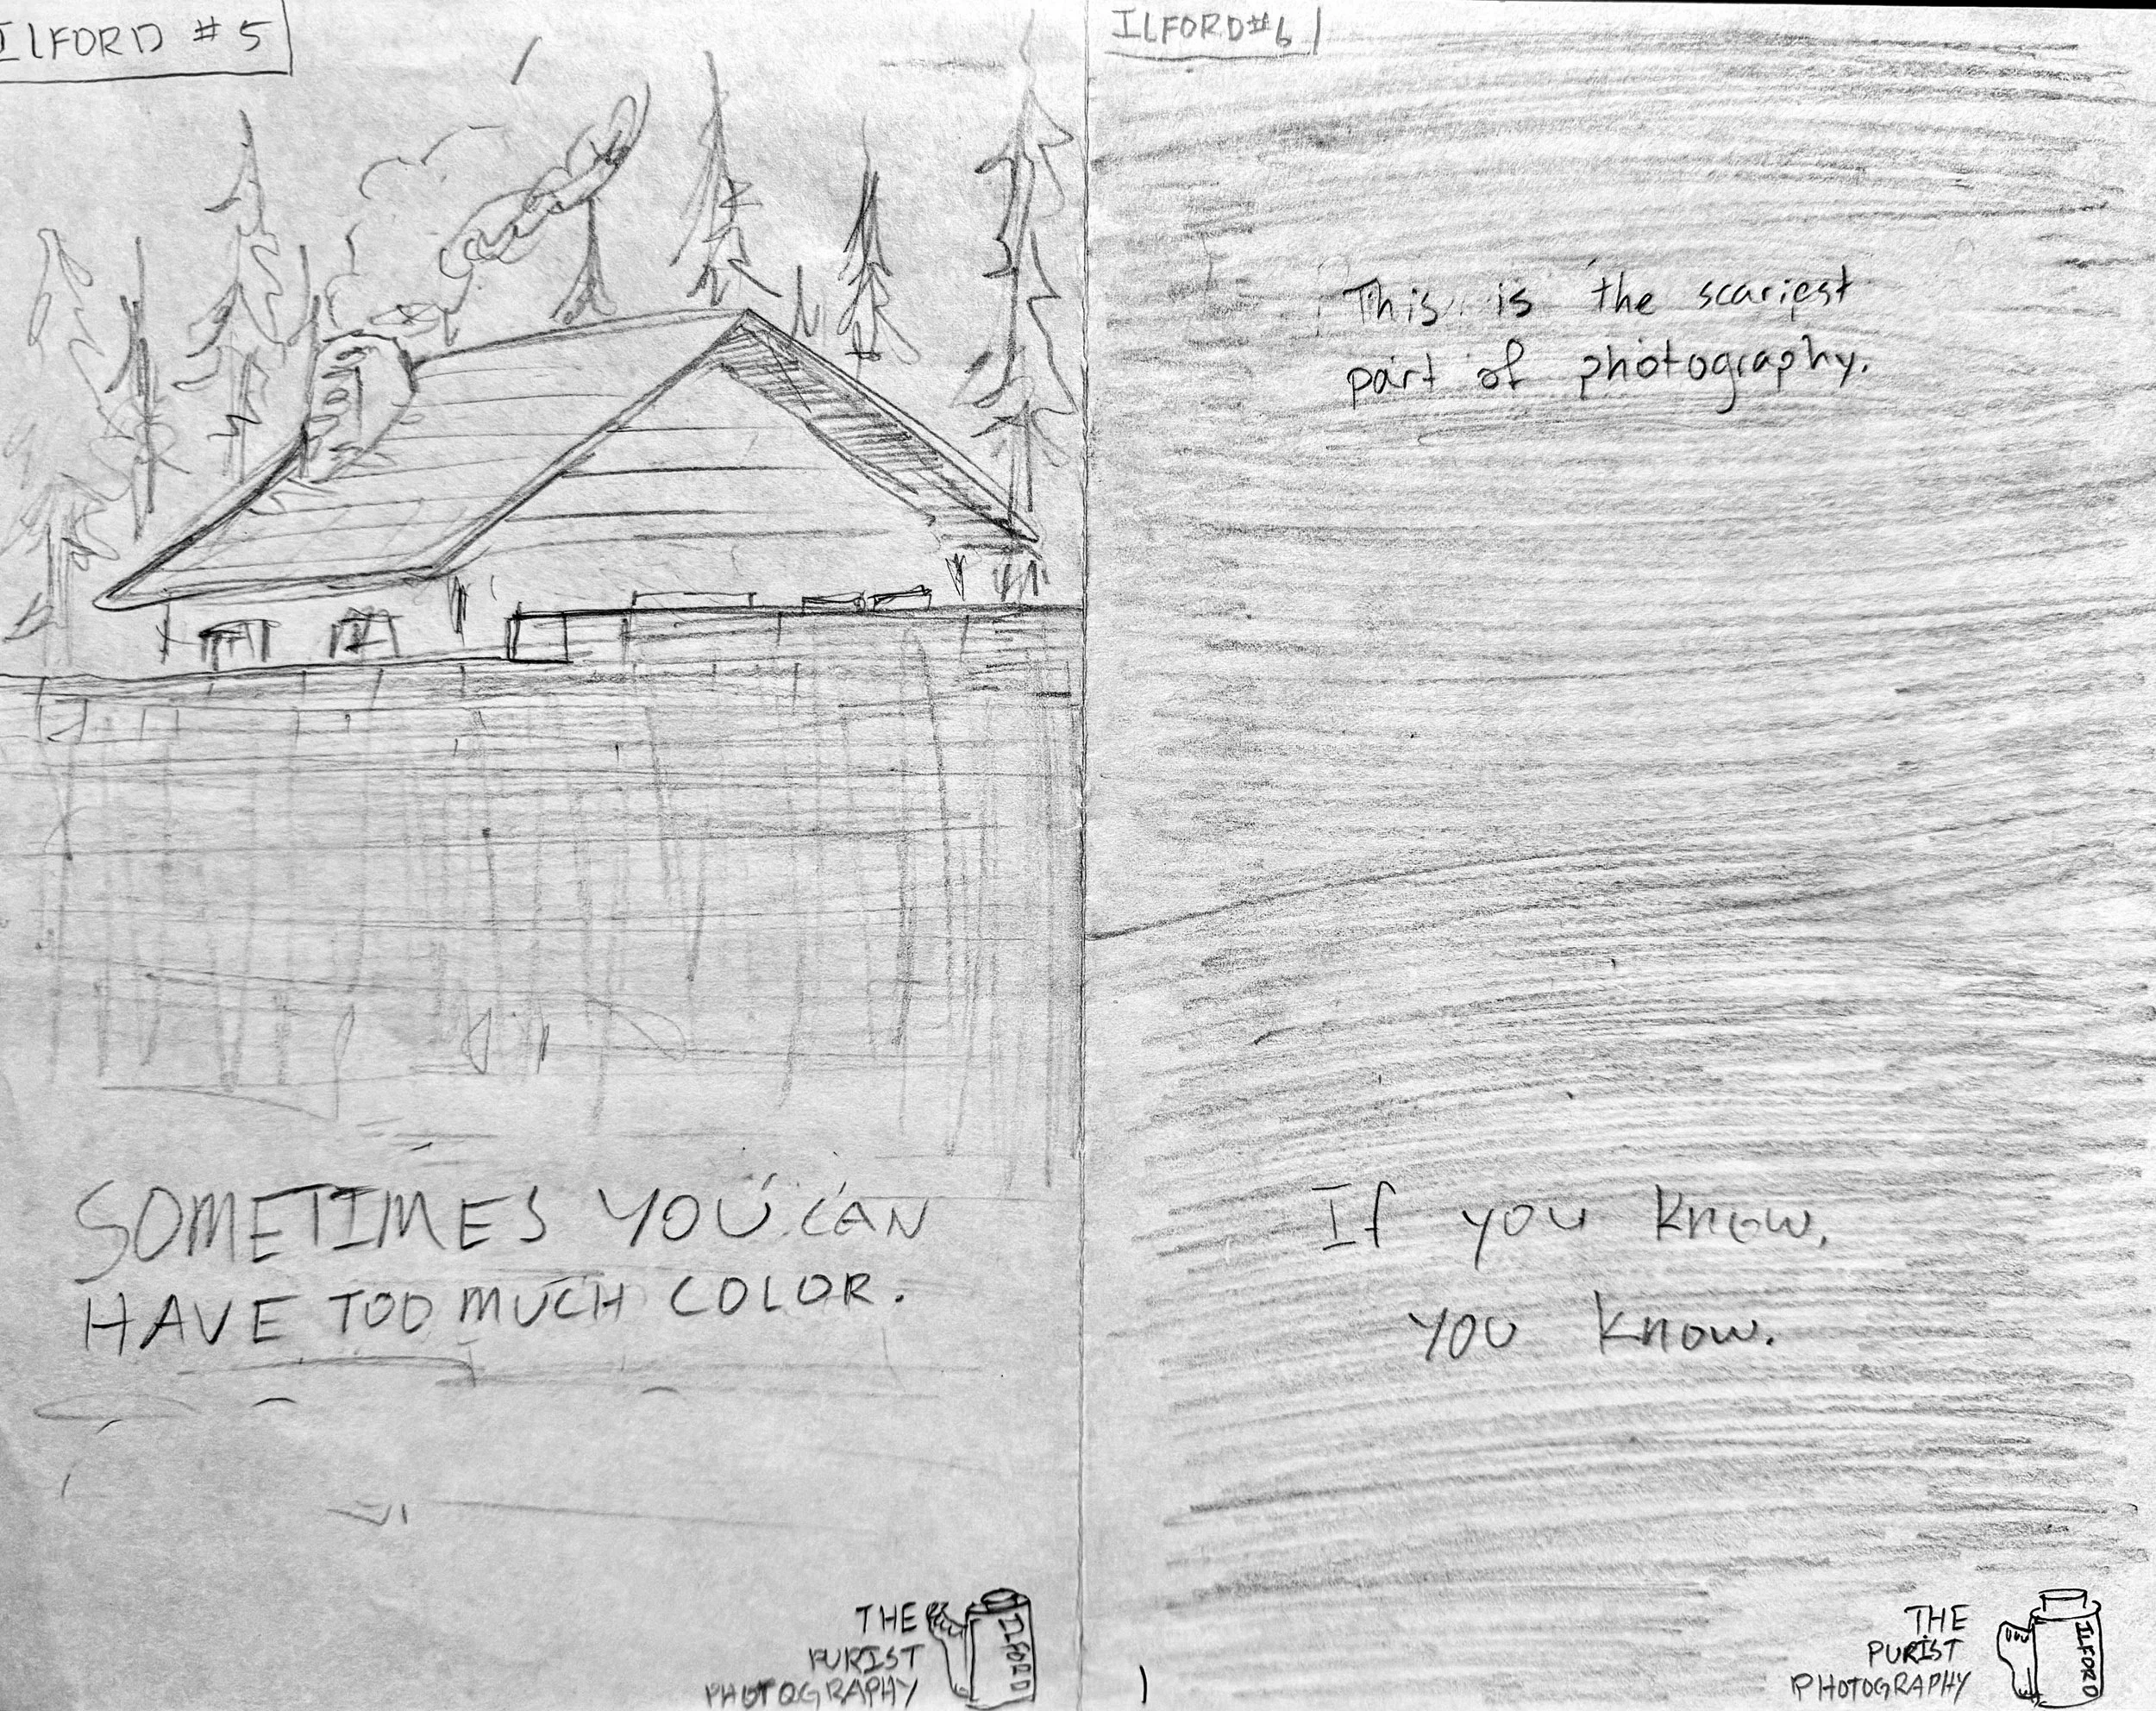 ILFORD #5
SOMETIMES YOU CAN
HAVE TOO MUCH COLOR.
THE
PURIST
PHOTOGRAPHY
ILFORD
ILFORD #6
This is the scariest
part of photography.
If you know,
you know.
THE
PURIST
PHOTOGRAPHY
ILFORD